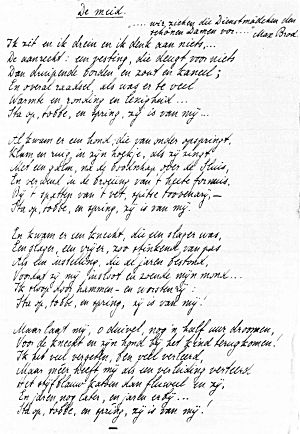 De meid.
.... wij zieken die Dienstmädchen den
schönen Damen vor.... Max Brod.
Ik zit en ik drein en ik denk aan niets,...
De aanrecht: een vesting, die deugt voor niets
Dan druipende borden en zout en kaneel;
En overal raadsel, als was er te veel
Warmte en ronding en lenigheid...
Sta op, robbe, en spring, zij is van mij...
Al kwam er een hond, die van onder opspringt,
Klam en ruig, in zijn hoekje, als zij zingt,
Met een galm, na de boodschap over de sluis,
En verdwenen in de broeiing van 't heete fornuis.
Bij 't spatten van 't vet, spatte toovenarij,–
Sta op, robbe, en spring, zij is van mij!
En kwam er een knecht, die een slager was,
Een slager, een vrijer, zoo stinkend van pas
Als een instelling, die de jaren bestond,
Voordat zij mij toesloot en zoende mijn mond...
Ik sloop door hammen- en worstenrij:
Sta op, robbe, en spring, zij is van mij!
Maar laat mij, o duivel, nog 'n half uur droomen,
Voor de knecht en zijn hond bij het kind terugkomen!
Ik het veel vergeten, ben veel verleerd,
Maar meer heeft mij als een verleiding verteerd
Het stijfblauw katoen dan fluweel en zij,
En jaren nog later, en jaren erbij...
Sta op, robbe, en spring, zij is van mij!